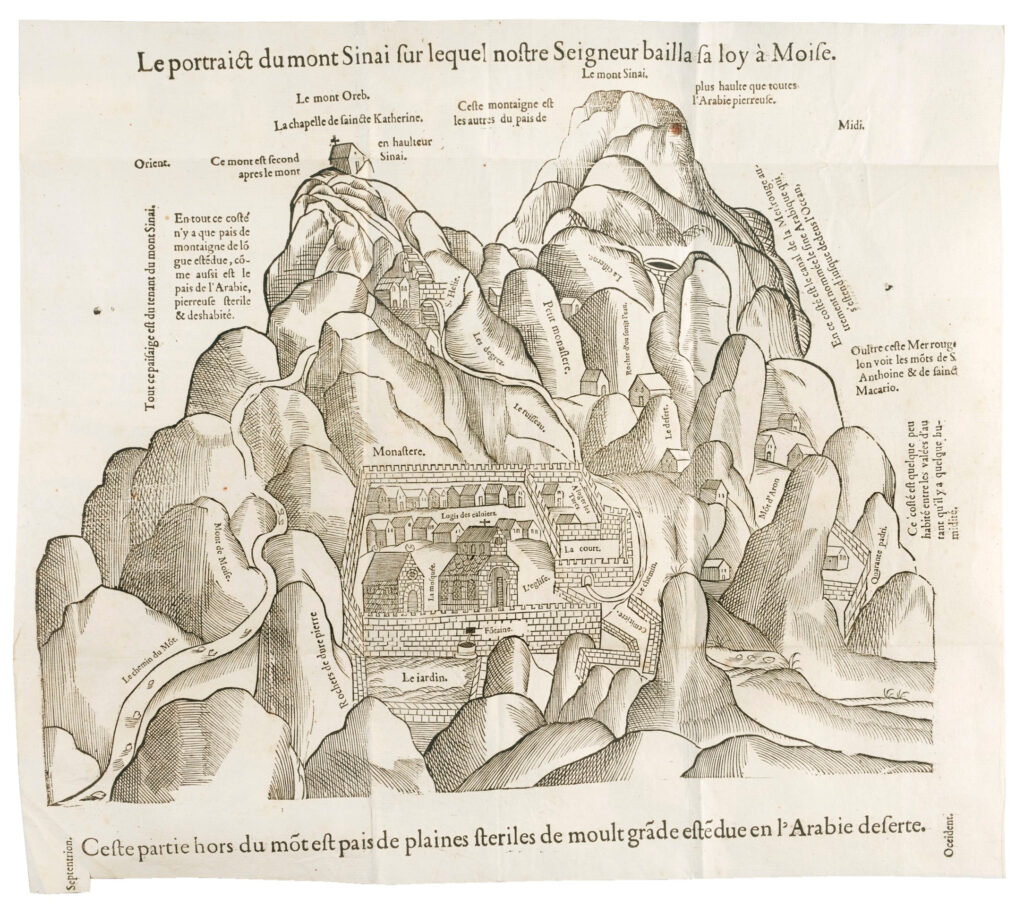 Le portraict du mont Sinai ſur lequel noſtre Seigneur bailla ſa loy à Moiſe.
Le mont Sinai.
Ceſte montaigne eſt
plus haulte que toutes
les autres du païs de
l'Arabie pierreuſe.
Le mont Oreb.
La chapelle de ſaincte Katherine.
Ce mont eſt ſecond
en haulteur
apres le mont
Sinai.
Orient.
Midi.
Tout ce païſaige eſt du tenant du mont Sinai.
En tout ce coſté
n'y a que pais de
montaigne de lõ
gue eſtẽdue, cõ-
me auſsi eſt le
pais de l'Arabie,
pierreuſe ſterile
& deshabité.
En ce coſté eſt le canal de la Mer rouge au
trement nommée le ſine Arabique qui
s'eſtend iuſque dedens l'Ocean.
Oultre ceſte Mer rouge
lon voit les mõts de S.
Anthoine & de ſainct
Macario.
Ce coſté eſt quelque peu
habité entre les valées d'au
tant qu'il y a quelque hu-
midité,
La ciſterne.
S. Helie.
Les degrez.
Petit monaſtere.
Rocher d'ou ſortit l'eau.
Le ruiſſeau.
Le deſert.
Monaſtere.
Logis des caloiers.
La court.
La moſquée.
L'egliſe.
Le chemin.
Cemitiere.
Fõtaine.
Le iardin.
Mõt d'Aron
Quarante padri.
Mont de Moiſe.
Le chemin du Mõt.
Rochers de dure pierre
Ceſte partie hors du mõt eſt païs de plaines ſteriles de moult grãde eſtẽdue en l'Arabie deſerte.
Septentrion.
Occident.